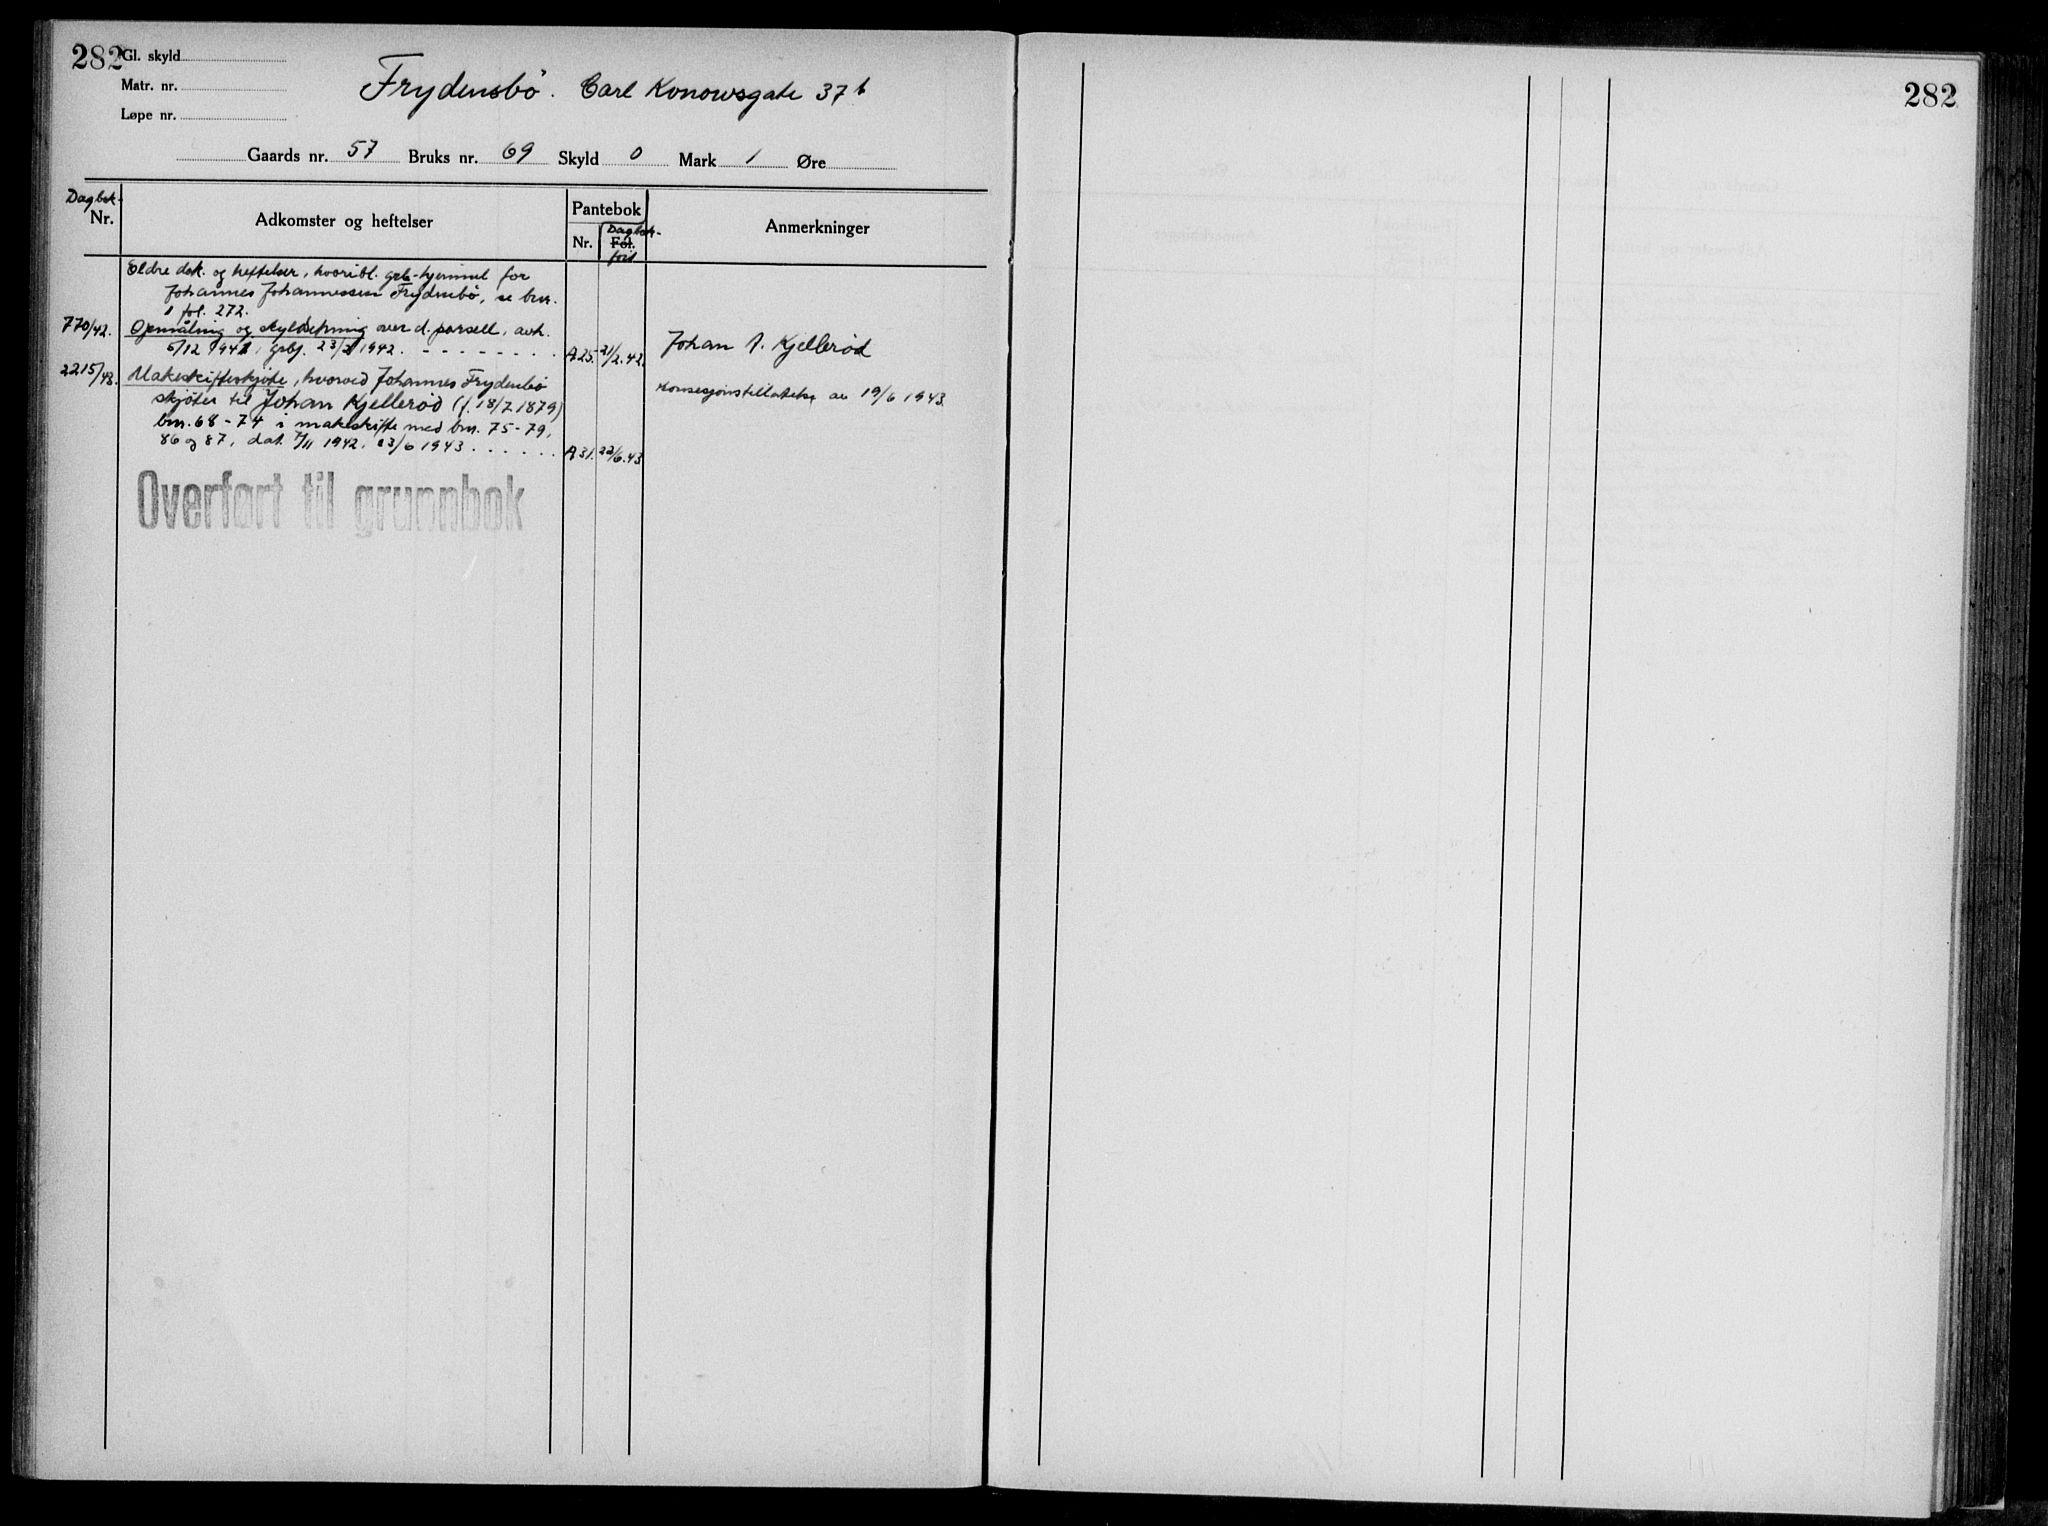 282
Gl. skyld
Matr. nr.
Løpe nr.
Frydensbö. Carl Konowsgate 37b
Gaards nr. 57 Bruks nr. 69 Skyld 0 Mark 1 Øre
Dagbok-
Nr.
Adkomster og heftelser
Pantebok
Nr.
Dagbok-
Fol.
ført
Anmerkninger
Eldre dok. og heftelser, hvoribl. grb-hjemmel for
Johannes Johannessen Frydensbö, se bnr.
1 fol. 272.
770/42. Opmåling og skyldsetning over d. parsell, avh.
5/12 1941, grbj. 23/2 1942. - - - - - - - - A25. 21/2.42. Johan A. Kjellerød
2215/43. Makeskifteskjöte, hvorved Johannes Frydensbö
skjöter til Johan Kjellerød (f. 18/7 1879) Konsesjonstillatelse av 19/6 1943.
bnr. 68-74 i makeskifte med bnr. 75-79,
86 og 87, dat. 7/11 1942. 23/6 1943. . . . . . . A31. 22/6.43
Overført til grunnbok
282